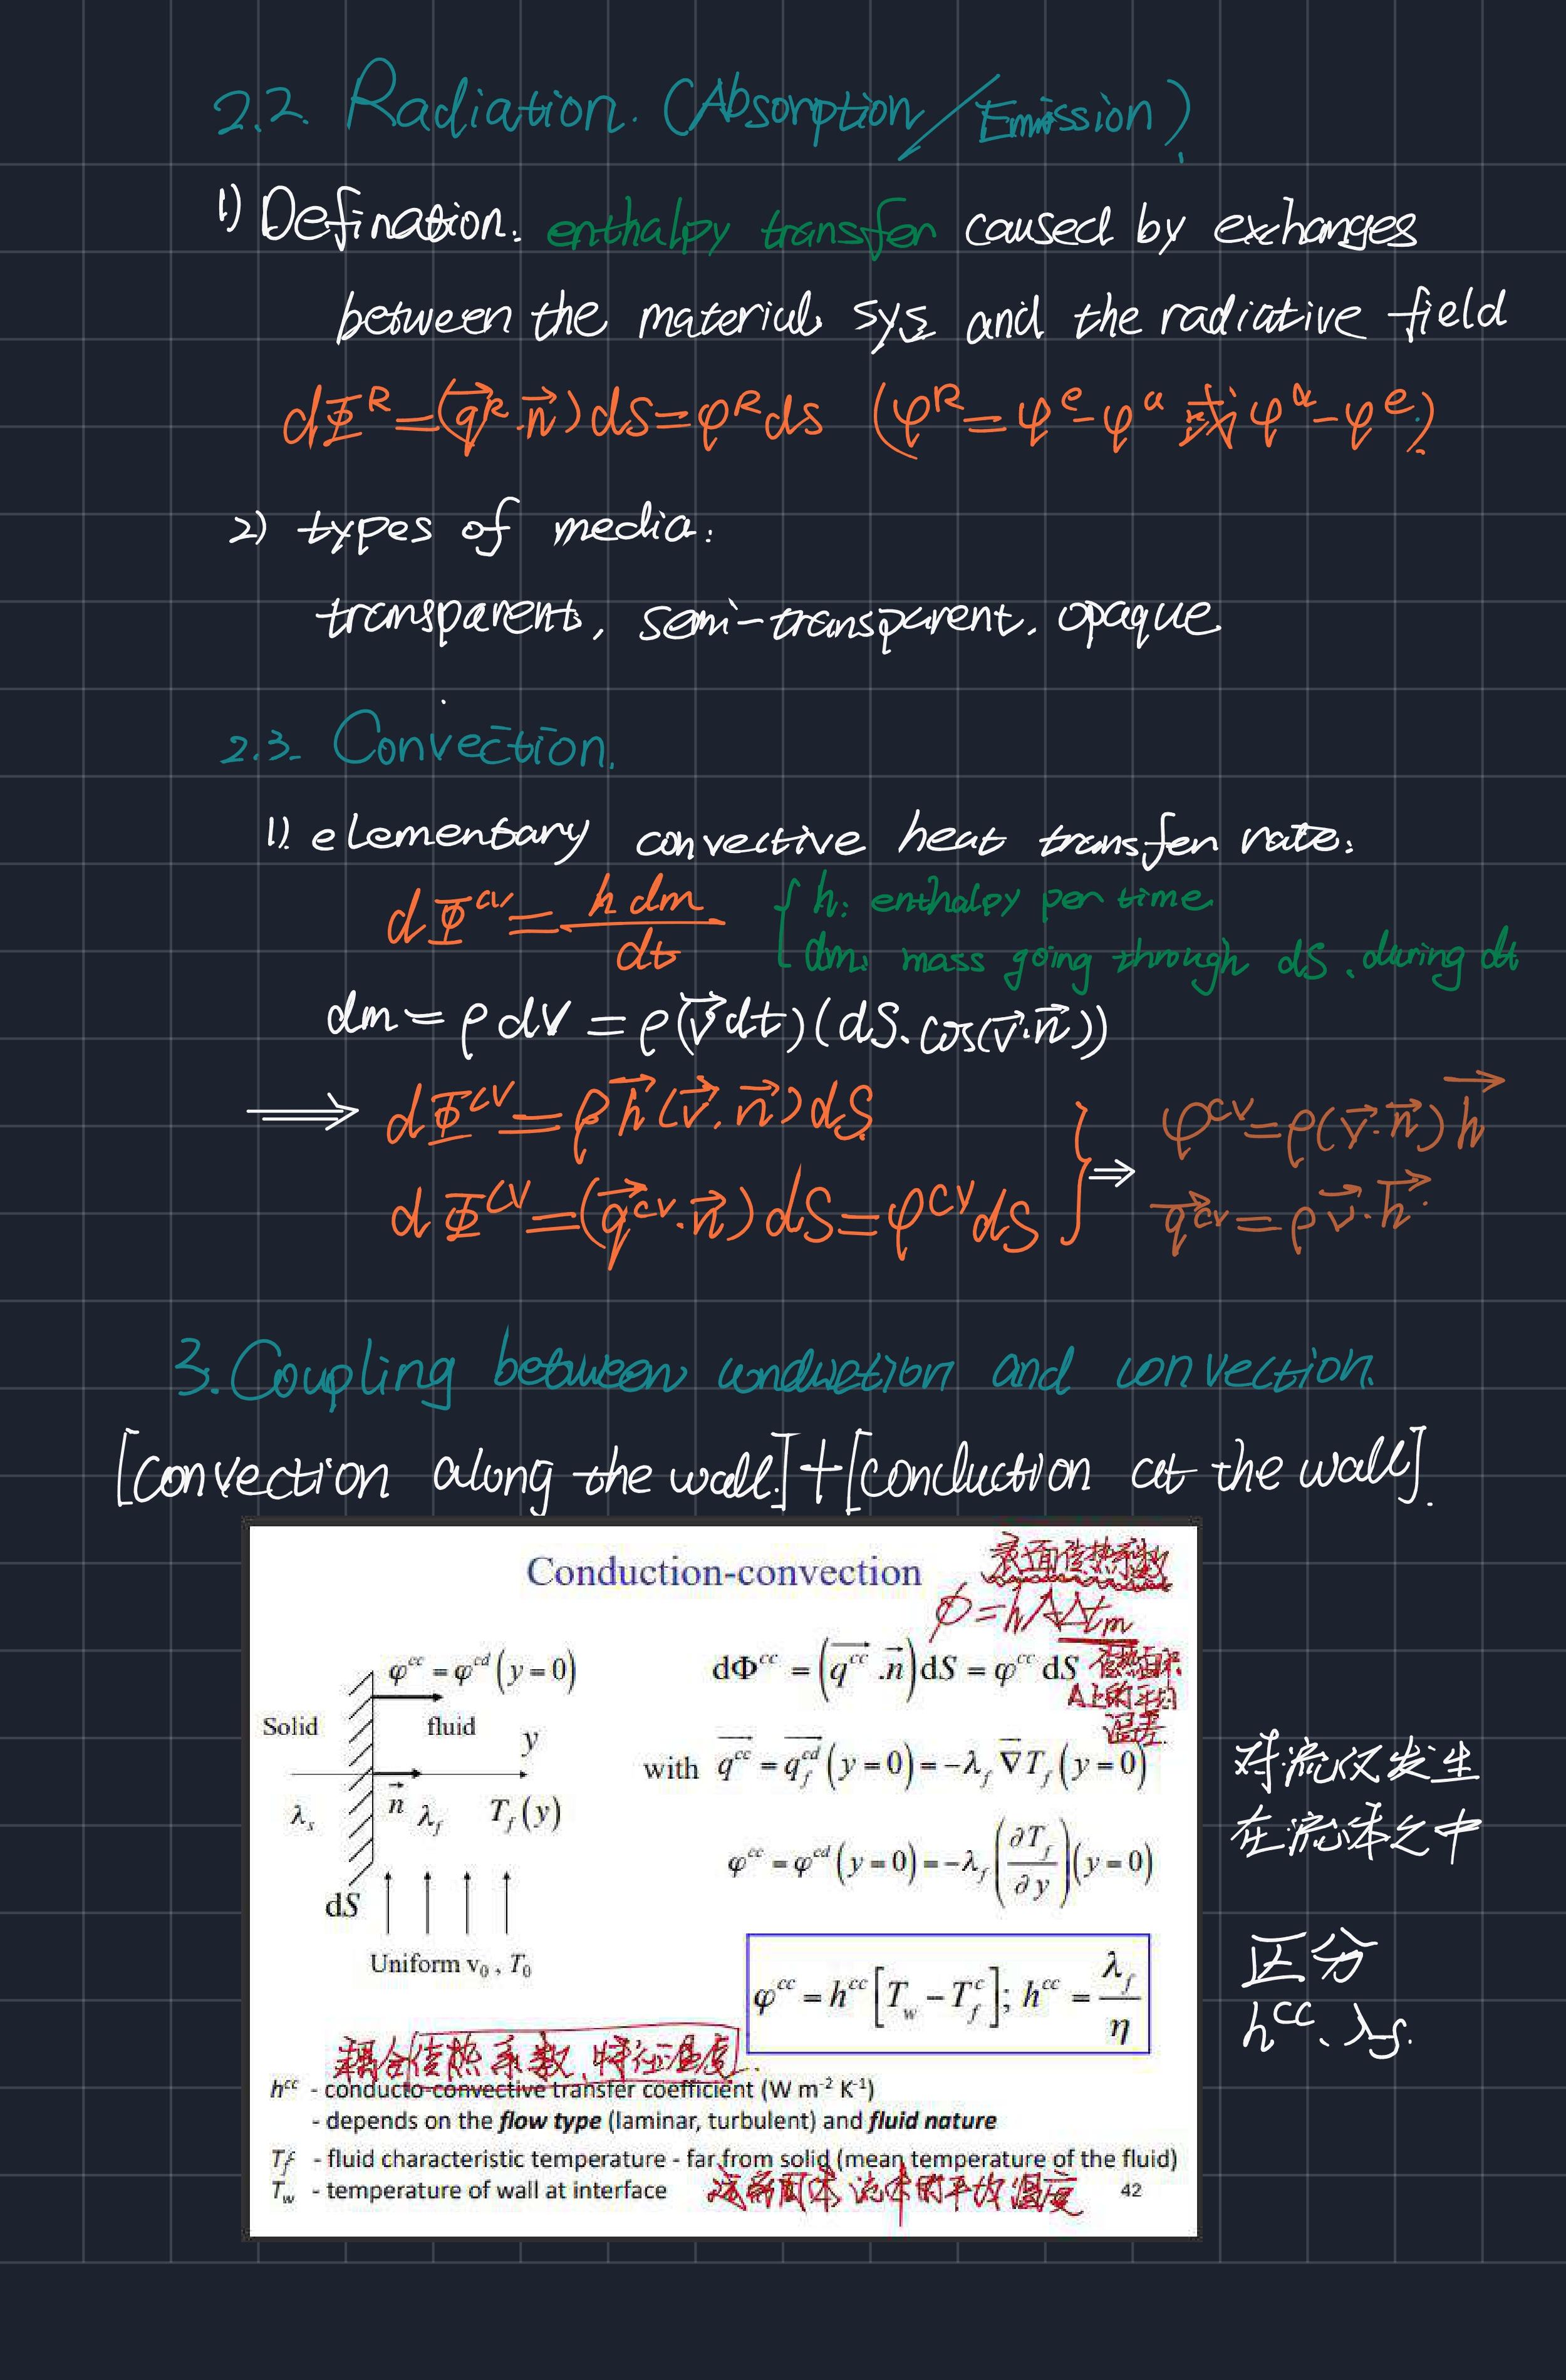 2.2. Radiation. (Absorption/Emission)
1) Defination: enthalpy transfer caused by exchanges
between the material sys and the radiative field
dΦ^R = (q^R·n)dS = φ^R ds (φ^R = φ^e - φ^a 或 φ^a - φ^e)
2) types of media:
transparent, semi-transparent. opaque
2.3. Convection.
1). elementary convective heat transfer rate:
dΦ^cv = h dm / dt { h: enthalpy per time
dm: mass going through dS. during dt
dm = ρ dV = ρ(v⃗dt)(dS·cos(v⃗·n⃗))
⟹ dΦ^cv = ρh⃗(v⃗·n⃗)dS
dΦ^cv = (q⃗^cv·n⃗)dS = φ^cv dS } ⇒ φ^cv = ρ(v⃗·n⃗)h⃗
q⃗^cv = ρv⃗·h⃗
3. Coupling between conduction and convection.
[Convection along the wall] + [conduction at the wall].
Conduction-convection
表面传热系数
ϕ = hAΔt_m
传热面积
A上的平均
温差
φ^cc = φ^cd (y = 0)
Solid
fluid
y
n⃗
λ_s
λ_f
T_f (y)
dS
Uniform v_0 , T_0
dΦ^cc = (q^cc⃗ . n⃗) dS = φ^cc dS
with q^cc⃗ = q_f^cd⃗ (y = 0) = -λ_f ∇⃗T_f (y = 0)
φ^cc = φ^cd (y = 0) = -λ_f (∂T_f / ∂y) (y = 0)
φ^cc = h^cc [T_w - T_f^c]; h^cc = λ_f / η
耦合传热系数、特征温度
h^cc - conducto-convective transfer coefficient (W m^-2 K^-1)
- depends on the flow type (laminar, turbulent) and fluid nature
T_f - fluid characteristic temperature - far from solid (mean temperature of the fluid)
T_w - temperature of wall at interface
远离固体,流体的平均温度
42
对流仅发生
在流体之中
区分
h^cc、λ_f.